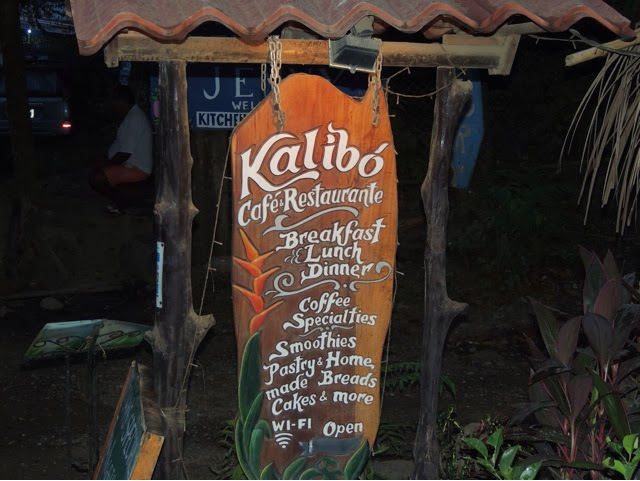 WEL
KITCHE
Kalibó
Café & Restaurante
Breakfast
& Lunch
Dinner
Coffee
Specialties
Smoothies
Pastry & Home
made Breads
Cakes & more
WI-FI Open